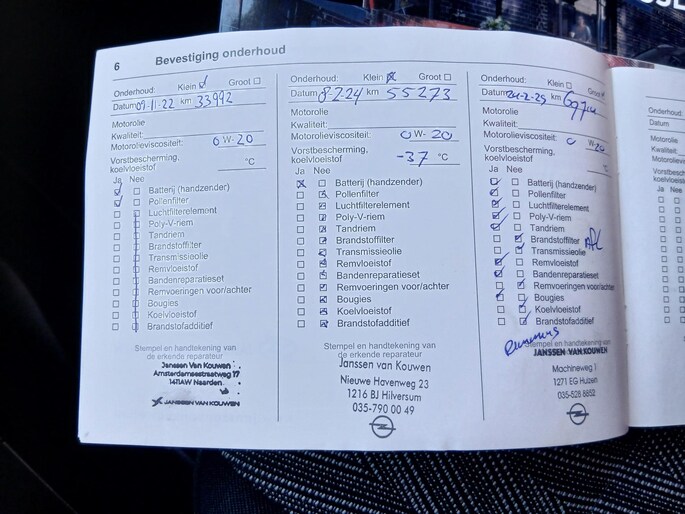 6 Bevestiging onderhoud
Onderhoud: Klein Groot
Datum 09-11-22 km 33992
Motorolie
Kwaliteit:
Motorolieviscositeit: 0 W-20
Vorstbescherming,
koelvloeistof °C
Ja Nee
Batterij (handzender)
Pollenfilter
Luchtfilterelement
Poly-V-riem
Tandriem
Brandstoffilter
Transmissieolie
Remvloeistof
Bandenreparatieset
Remvoeringen voor/achter
Bougies
Koelvloeistof
Brandstofadditief
Stempel en handtekening van
de erkende reparateur
Janssen Van Kouwen
Amsterdamsestraatweg 17
1411AW Naarden
JANSSEN VAN KOUWEN
Onderhoud: Klein Groot
Datum 8-2-24 km 55273
Motorolie
Kwaliteit:
Motorolieviscositeit: 0 W-20
Vorstbescherming,
koelvloeistof -37 °C
Ja Nee
Batterij (handzender)
Pollenfilter
Luchtfilterelement
Poly-V-riem
Tandriem
Brandstoffilter
Transmissieolie
Remvloeistof
Bandenreparatieset
Remvoeringen voor/achter
Bougies
Koelvloeistof
Brandstofadditief
Stempel en handtekening van
de erkende reparateur
Janssen van Kouwen
Nieuwe Havenweg 23
1216 BJ Hilversum
035-790 00 49
Onderhoud: Klein Groot
Datum km
Motorolie
Kwaliteit:
Motorolieviscositeit: 0 W-20
Vorstbescherming,
koelvloeistof °C
Ja Nee
Batterij (handzender)
Pollenfilter
Luchtfilterelement
Poly-V-riem
Tandriem
Brandstoffilter
Transmissieolie
Remvloeistof
Bandenreparatieset
Remvoeringen voor/achter
Bougies
Koelvloeistof
Brandstofadditief
Stempel en handtekening van
JANSSEN VAN KOUWEN
Machineweg 1
1271 EG Huizen
035-526 8852
Onderhoud:
Datum
Motorolie
Kwaliteit:
Ja Nee